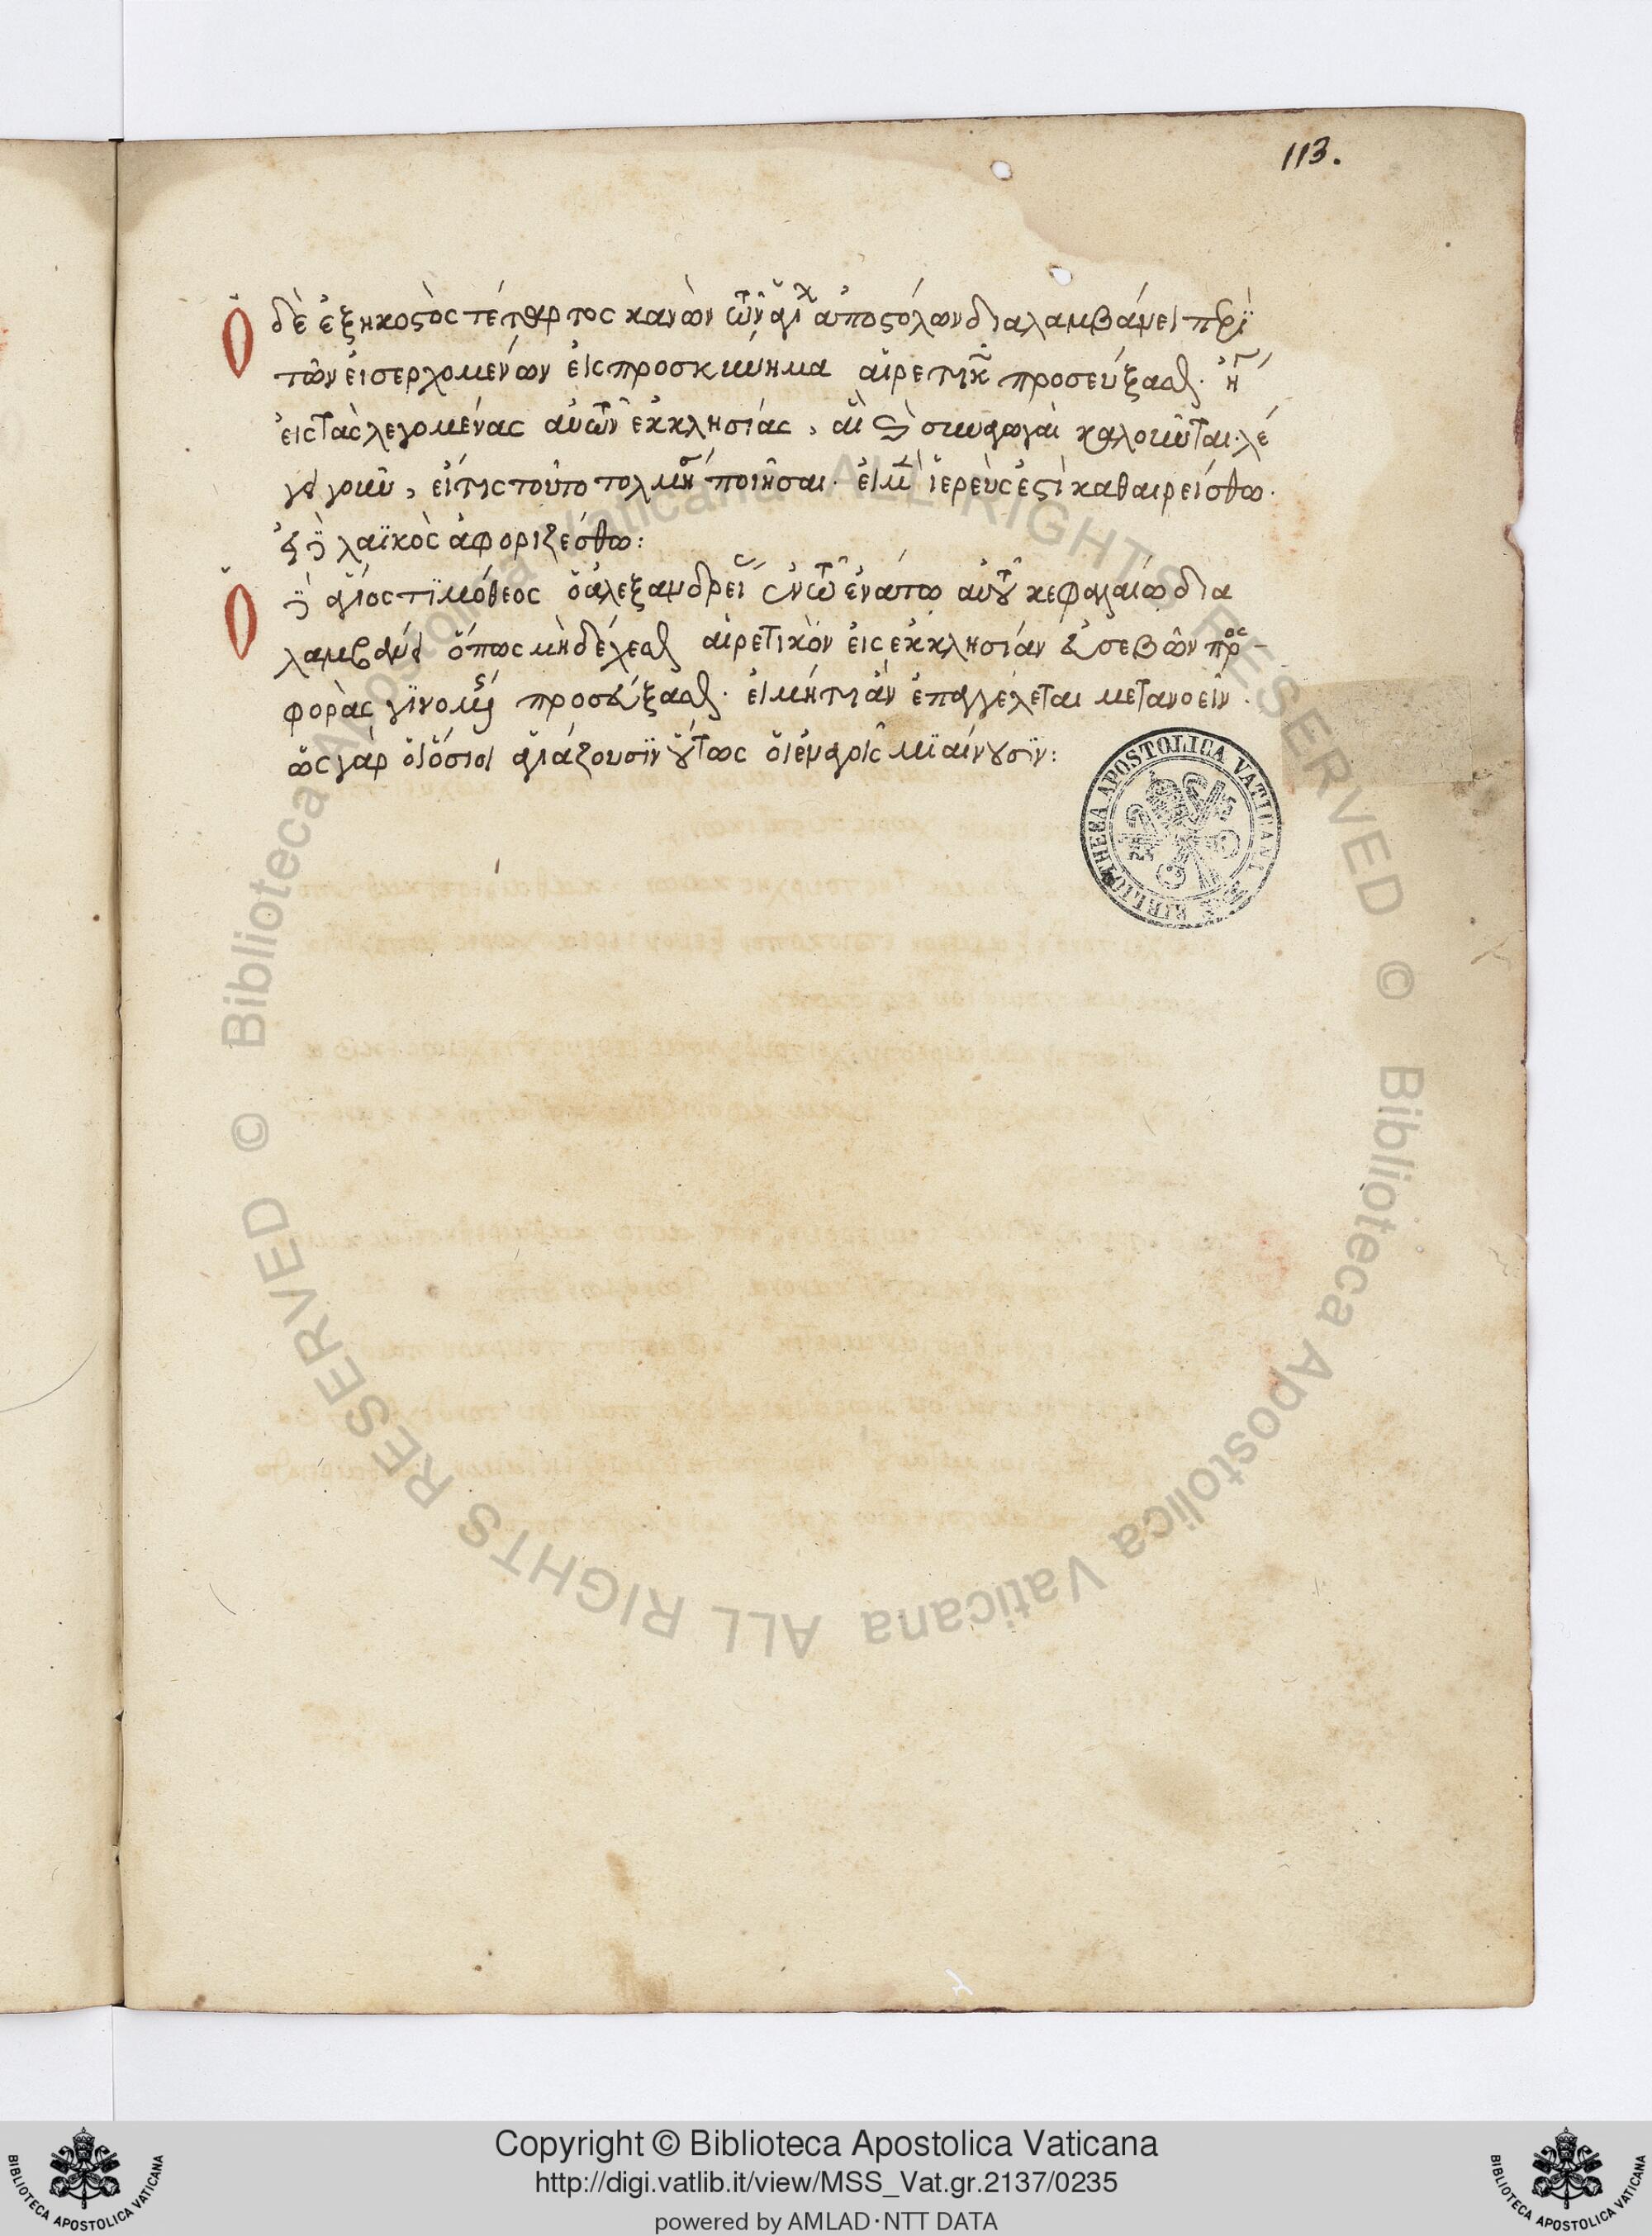 113.
Ὁ δὲ ἑξηκοστὸς τέταρτος κανὼν τῶν ἁγί ἀποστόλων διαλαμβάνει περὶ
τῶν εἰσερχομένων εἰς προσκύνημα αἱρετικῶν προσεύξασθαι· ἢ
εἰς τὰς λεγομένας αὐτῶν ἐκκλησίας, αἳ καὶ συναγωγαὶ καλοῦνται· λέ
γει γοῦν, εἴ τις τοῦτο τολμήσει ποιῆσαι· εἰ μὲν ἱερεύς ἐστι καθαιρείσθω·
εἰ δὲ λαϊκὸς ἀφοριζέσθω:
Ὁ δὲ ἅγιος τιμόθεος ὁ ἀλεξανδρείας ἐν τῶ ἐνάτω αὐτοῦ κεφαλαίω δια
λαμβάνει ὅπως μὴ δέχεσθαι αἱρετικὸν εἰς ἐκκλησίαν εὐσεβῶν προσ-
φορὰς γινομένης προσεύξασθαι· εἰ μήτι ἂν ἐπαγγέλεται μετανοεῖν·
ὡς γὰρ οἱ ὅσιοι ἁγιάζουσϊν οὕτως οἱ ἐναγοῖς μϊαίνουσϊν:
BIBLIOTHECA APOSTOLICA VATICANA
© Biblioteca Apostolica Vaticana ALL RIGHTS RESERVED
© Biblioteca Apostolica Vaticana ALL RIGHTS RESERVED
Copyright © Biblioteca Apostolica Vaticana
http://digi.vatlib.it/view/MSS_Vat.gr.2137/0235
powered by AMLAD·NTT DATA
BIBLIOTECA APOSTOLICA VATICANA
BIBLIOTECA APOSTOLICA VATICANA